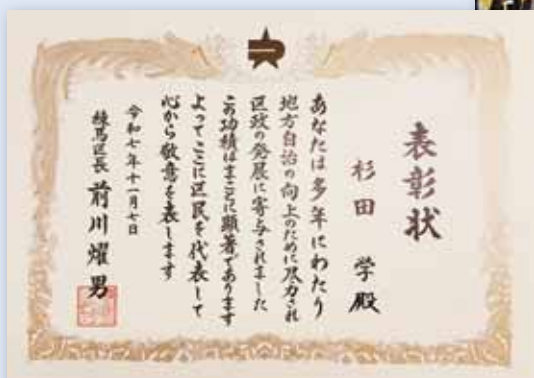 表彰状
杉田 学 殿
あなたは多年にわたり
地方自治の向上のために尽力され
区政の発展に寄与されました
この功績はまことに顕著であります
よってここに区民を代表して
心から敬意を表します
令和七年十一月七日
練馬区長 前川燿男